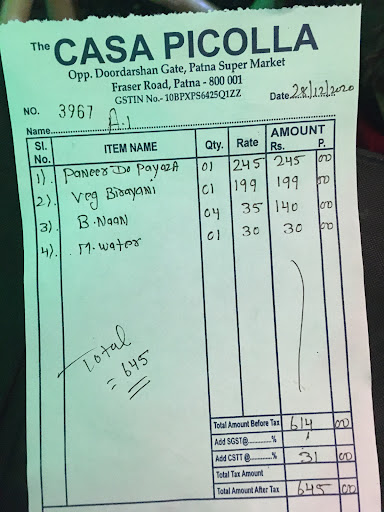 The CASA PICOLLA
Opp. Doordarshan Gate, Patna Super Market
Fraser Road, Patna - 800 001
GSTIN No.- 10BPXPS6425Q1ZZ
NO. 3967 Date 28/12/2020
Name A.1
Sl. No. ITEM NAME Qty. Rate AMOUNT Rs. P.
1). Paneer Do Payaza 01 245 245 00
2). Veg Birayani 01 199 199 00
3). B. Naan 04 35 140 00
4). M. water 01 30 30 00
Total
= 645
Total Amount Before Tax 614 00
Add SGST@..............%
Add CSTT @..............% 31 00
Total Tax Amount
Total Amount After Tax 645 00